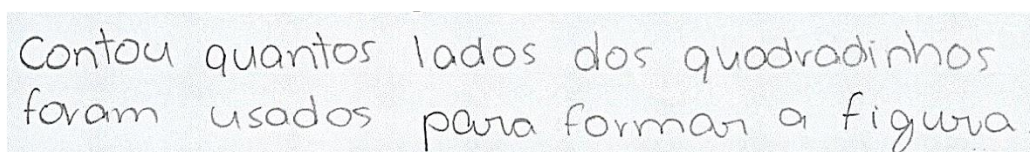 Contou quantos lados dos quadradinhos
foram usados para formar a figura